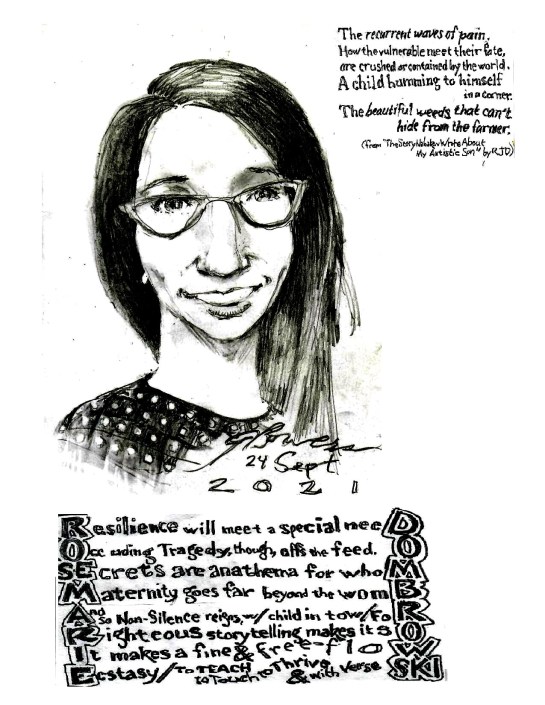 The recurrent waves of pain.
How the vulnerable meet their fate,
are crushed or contained by the world.
A child humming to himself
in a corner.
The beautiful weeds that can't
hide from the farmer.
(From "The Story Nabokov Wrote About
My Autistic Son" by RJD)
24 Sept
2021
Resilience will meet a special neeD
Tragedy, though, offs the feed. O
SEcrets are anathema for whoM
Maternity goes far beyond the womB
And So Non-Silence reigns, w/ child in tow/FoR
Righteous storytelling makes it sO
It makes a fine & free-floW
Ecstasy/ To TEACH to Touch to Thrive & with Verse SKI